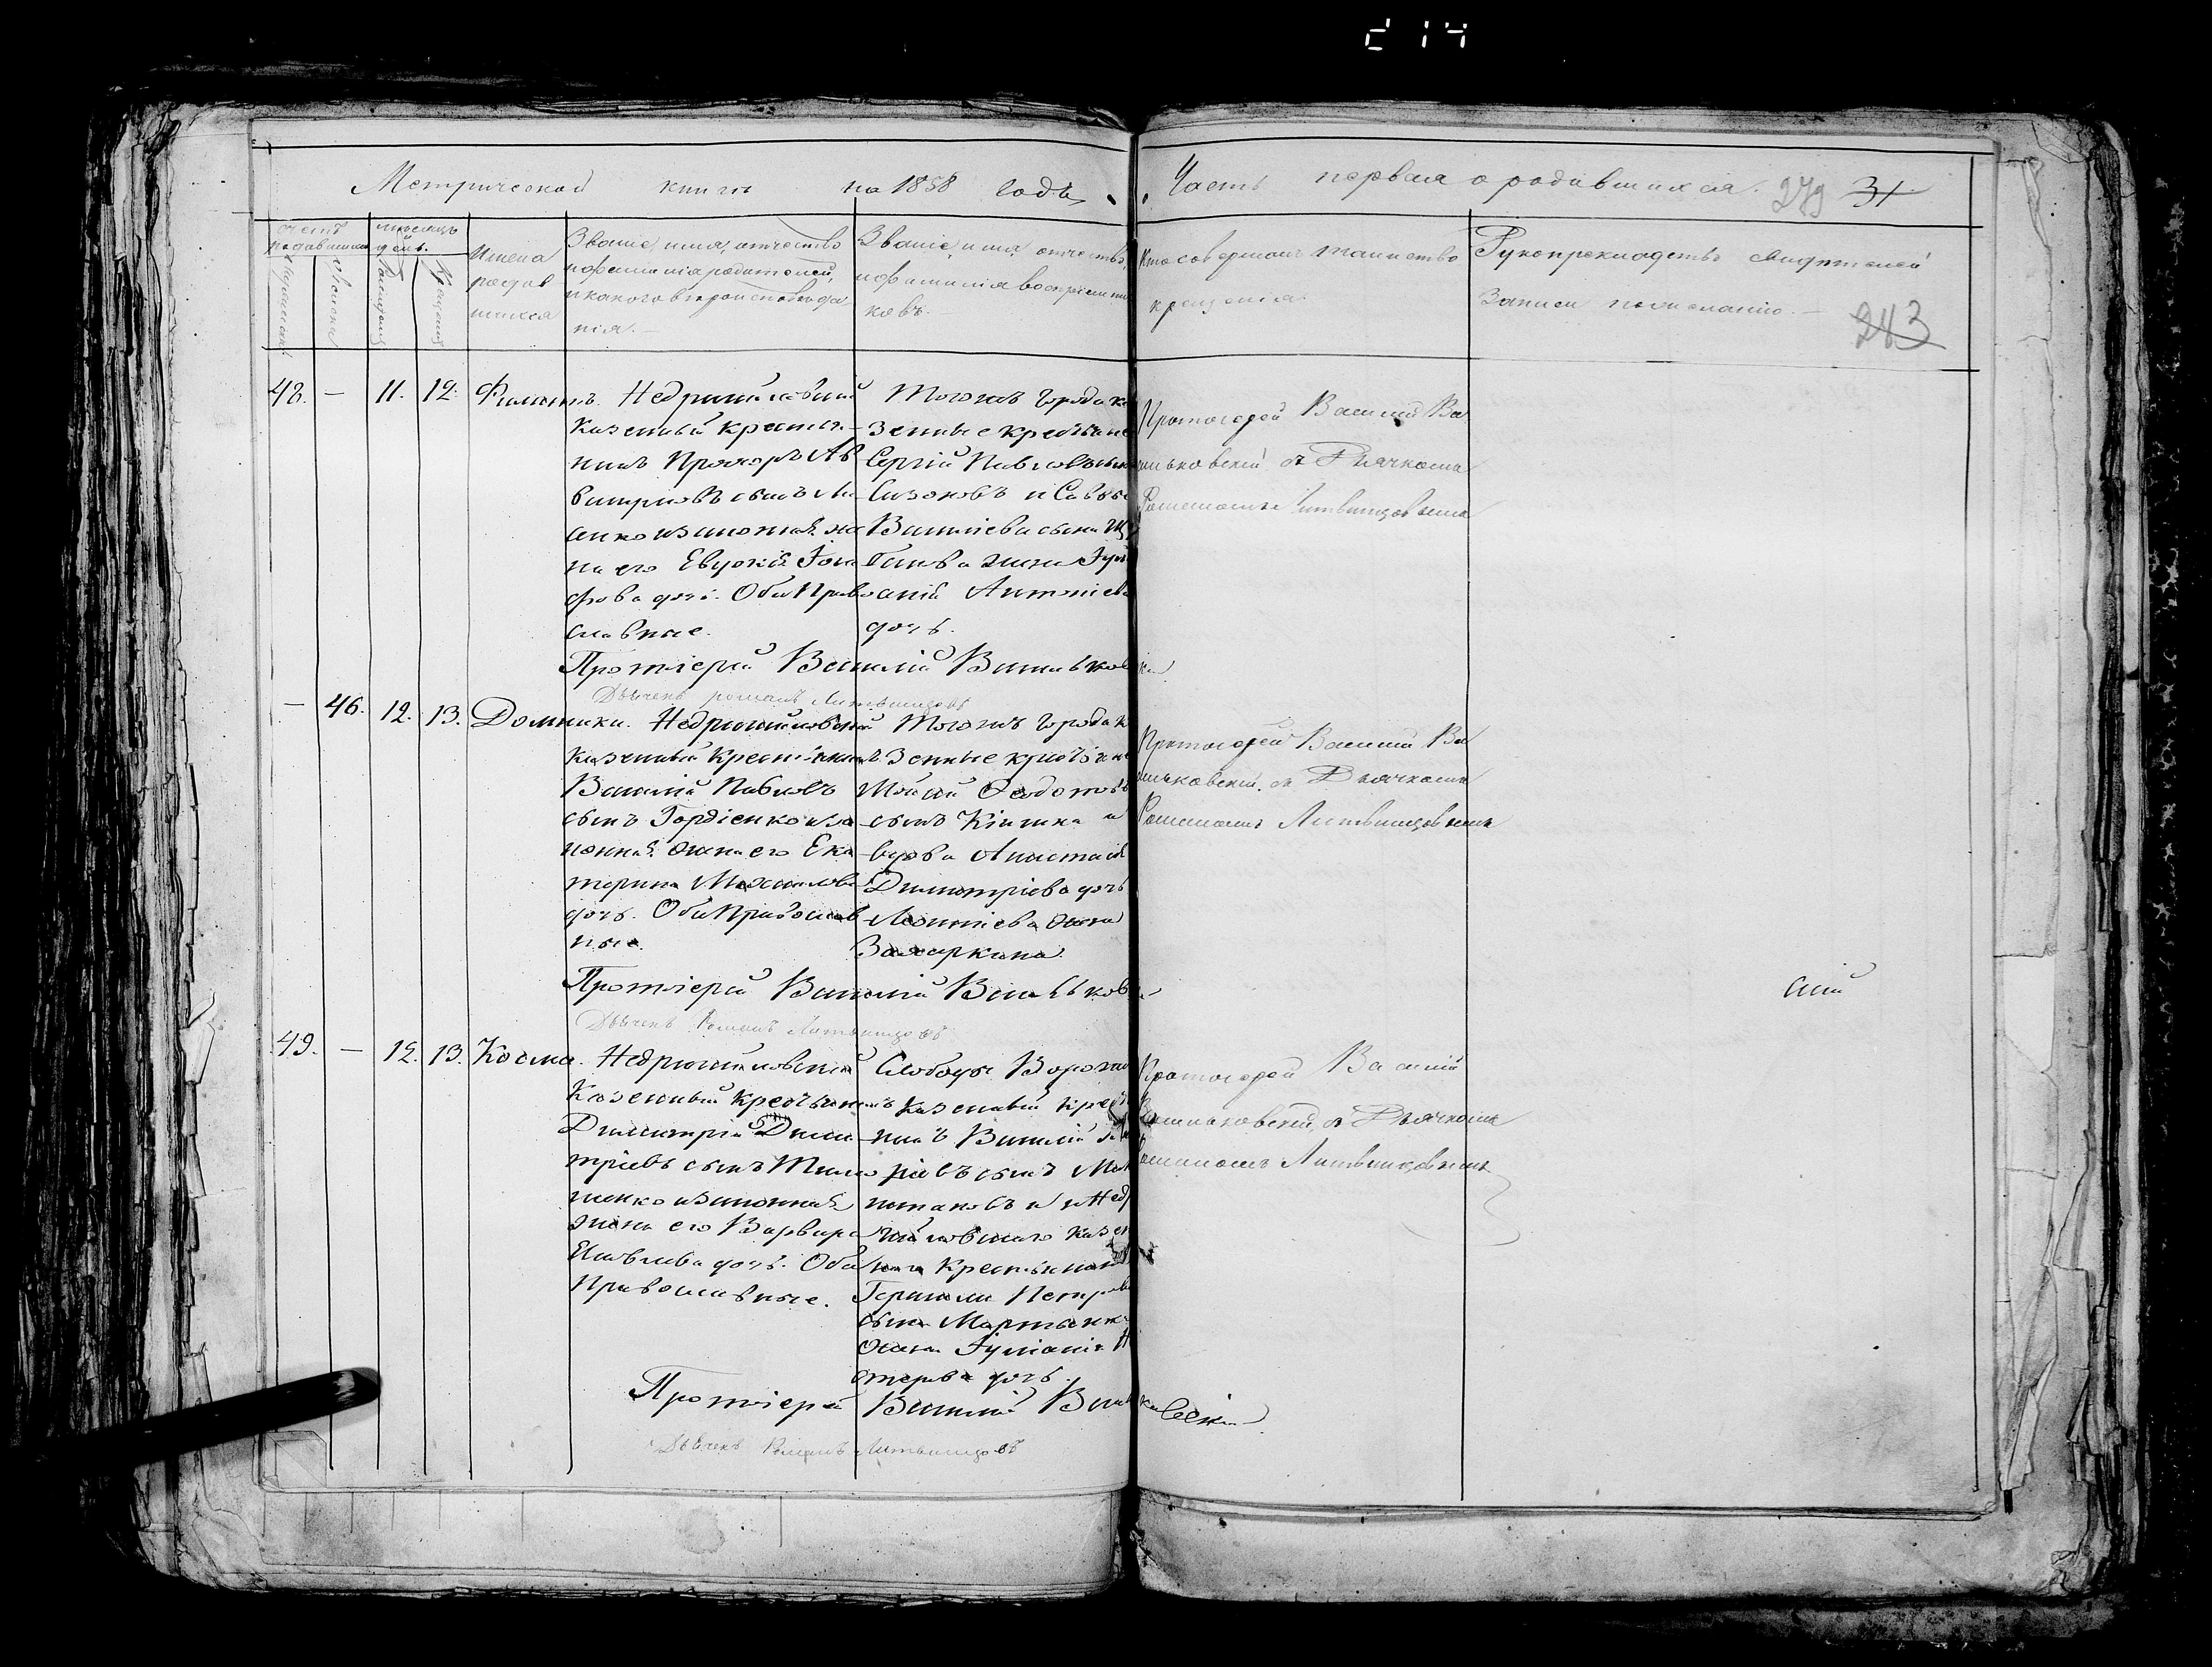 Метрической книги на 1858 годъ. Часть первая о родившихся. 279 31
счетъ родившихся
мѣсяцъ и день.
Имена родившихся
Званіе, имя, отчество и фамилія родителей, и какого вѣроисповѣданія.
Званіе, имя, отчество, и фамилія воспріемниковъ.
Кто совершалъ таинство крещенія.
Рукоприкладство свидѣтелей записи по желанію.
243
48. — 11. 12. Филиппъ. Недригайловскій
Казенный крестья-
нинъ Прохоръ Ав
сынъ
и законная же
на его Евдокія Іоси
фова дочь. Оба Право
славные.
Тогожъ города ка
зенные крестьяне
Сергій Павловъ сынъ
Сизоновъ и Саввы
Василіева сына
жена Іулі
анія Антоніева
дочь.
Протоіерей Василій Ва
сильковскій съ Дьячкомъ
Романомъ Литвинцовымъ
Протоіерей Василій Васильковскій
Дьячекъ Романъ Литвинцовъ
— 46. 12. 13. Домники. Недригайловскій
Казенный крестьянинъ
Василій Павловъ
сынъ Гордіенко и за
конная жена его Ека
терина Михайлова
дочь. Оба Православ
ные.
Тогожъ города ка
зенные крестьяне
Моѵсей Ѳеодотовъ
сынъ и
вдова Анастасія
Димитріева дочь
Леонтіева жена
Захаркина.
Протоіерей Василій Ва
сильковскій съ Дьячкомъ
Романомъ Литвинцовымъ
Протоіерей Василій Васильков
скій
Дьячекъ Романъ Литвинцовъ
49. — 12. 13. Косма. Недригайловскій
Казенный крестьянинъ
Димитрій Дими
тріевъ сынъ Тима
шенко и законная
жена его Варвара
Іаковлева дочь. Оба
Православные.
Слободы
Казенный крестья
нинъ Василій
ріевъ сынъ
и Недри
гайловскаго казен
наго крестьянина
Герасима Петрова
сына
жена Іуліанія Н
естерова дочь.
Протоіерей Василій
Васильковскій съ Дьячкомъ
Романомъ Литвинцовымъ
Протоіерей Василій Васильковскій
Дьячекъ Романъ Литвинцовъ